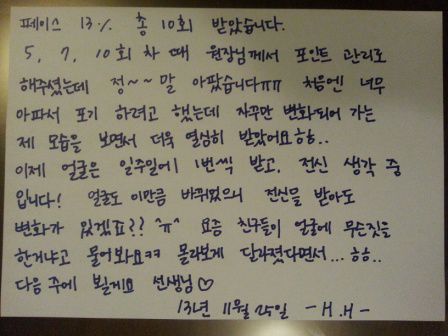 페이스 13% 총 10회 받았습니다.
5, 7, 10회 차 때 원장님께서 포인트 관리로
해주셨는데 정~~말 아팠습니다ㅠㅠ 처음엔 너무
아파서 포기 하려고 했는데 자꾸만 변화되어 가는
제 모습을 보면서 더욱 열심히 받았어요ㅎㅎ..
이제 얼굴은 일주일에 1번씩 받고, 전신 생각 중
입니다! 얼굴도 이만큼 바뀌었으니 전신을 받아도
변화가 있겠죠?? ^ㅠ^ 요즘 친구들이 얼굴에 무슨짓을
한거냐고 물어봐요ㅋㅋ 몰라보게 달라졌다면서... ㅎㅎ..
다음 주에 뵐게요 선생님♡
13년 11월 25일 -H.H-